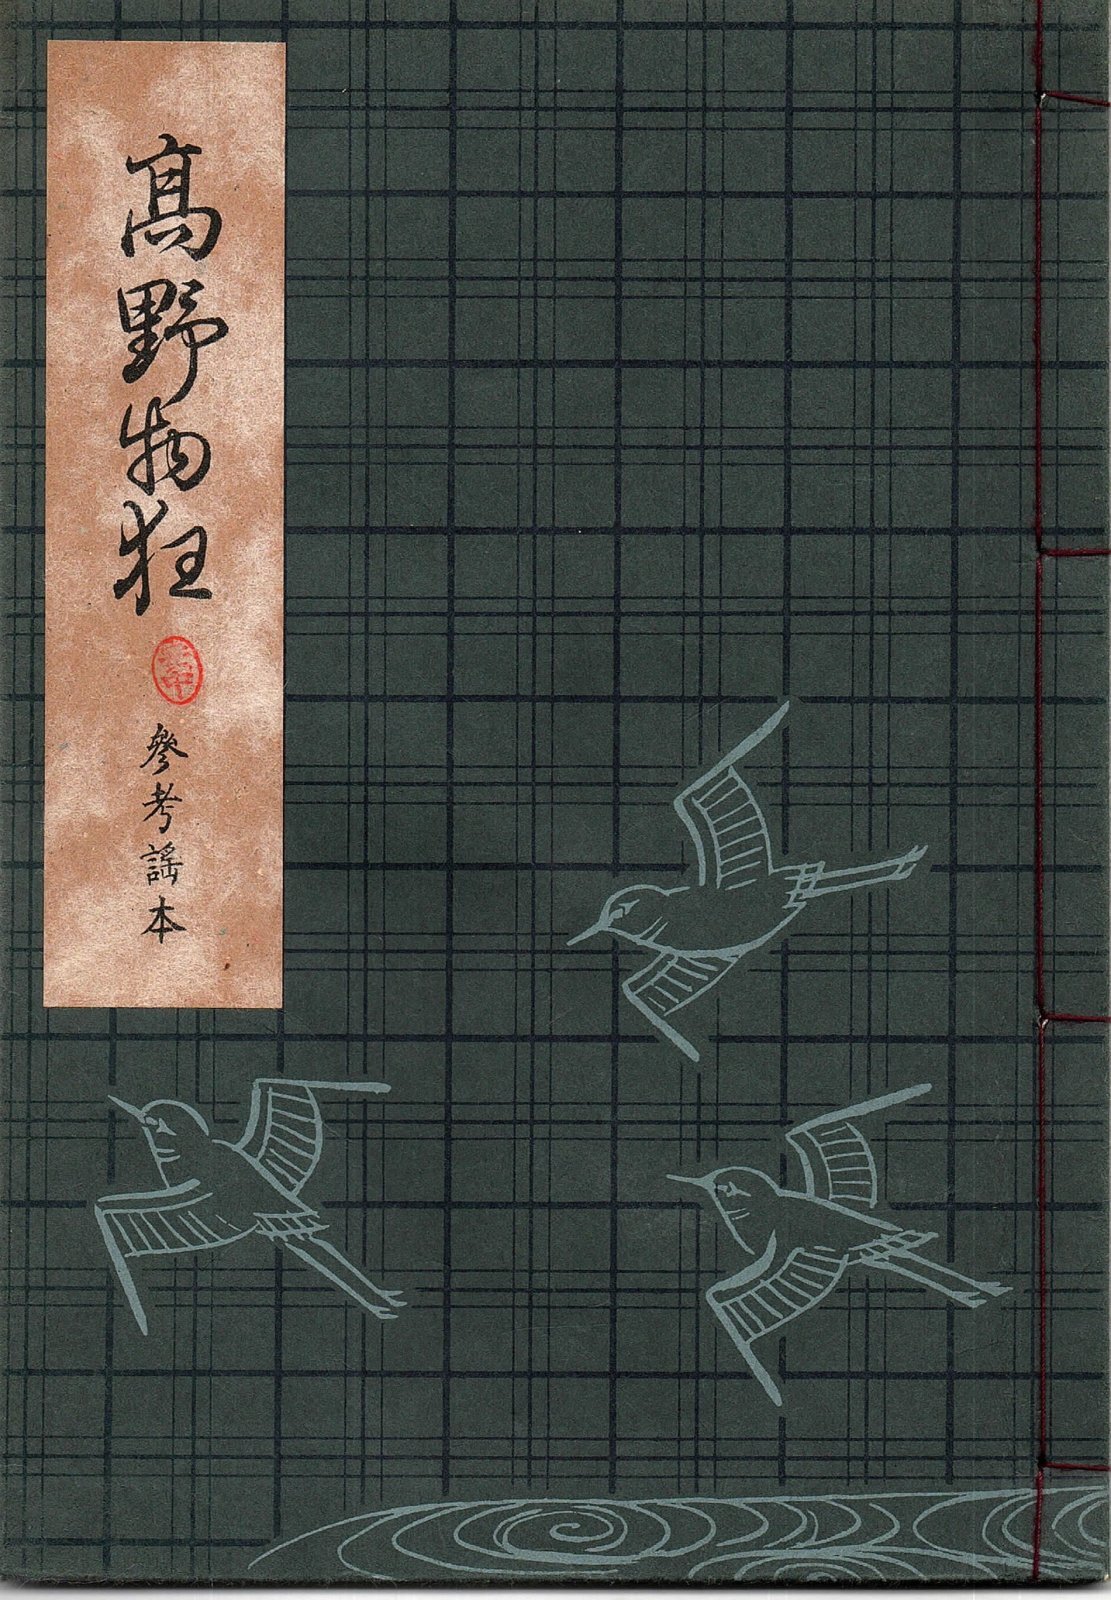 髙野物狂
參考謠本